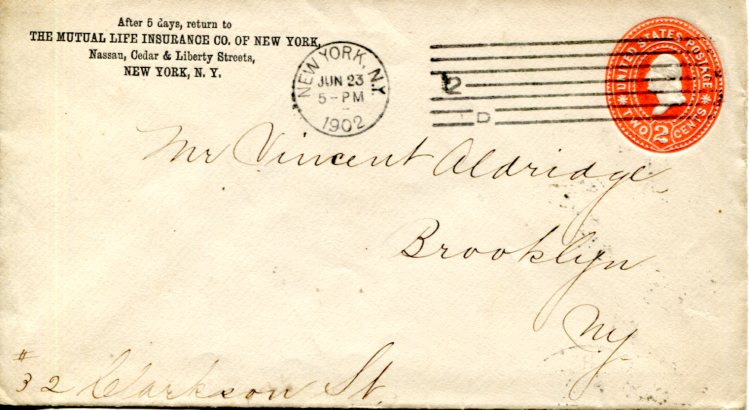 After 5 days, return to
THE MUTUAL LIFE INSURANCE CO. OF NEW YORK,
Nassau, Cedar & Liberty Streets,
NEW YORK, N. Y.
NEW YORK, N.Y.
JUN 23
5-PM
1902
2
D
UNITED STATES POSTAGE
TWO 2 CENTS
Mr Vincent Aldridge
Brooklyn
NY
# 32 Clarkson St.